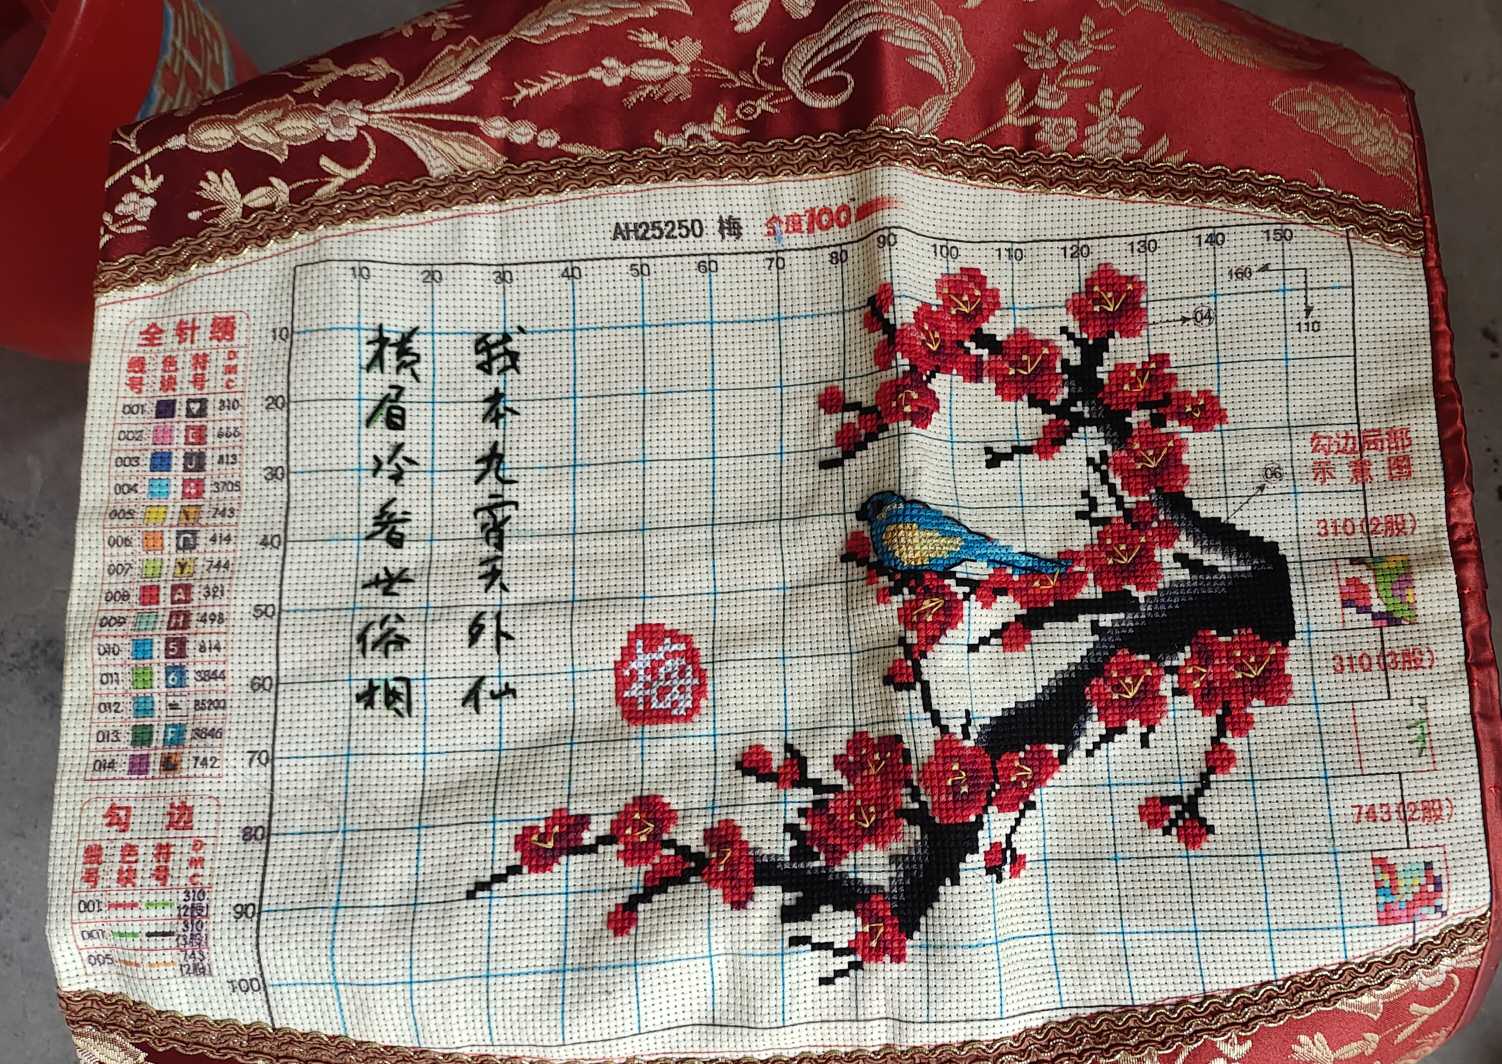 AH25250 梅 全度100
10 20 30 40 50 60 70 80 90 100 110 120 130 140 150
160
110
04
10
20
30
40
50
60
70
80
90
100
我本九霄天外仙
横眉冷看世俗相
梅
全针绣
线号 色块 符号 DMC
001 310
002 666
003 813
004 3705
005 743
006 414
007 744
008 321
009 498
010 5 814
011 6 3844
012 B5200
013 3846
014 742
勾边
线号 色块 符号 DMC
001 310 (2股)
001 310 (3股)
005 743 (2股)
勾边局部
示意图
06
310(2股)
310(3股)
743(2股)